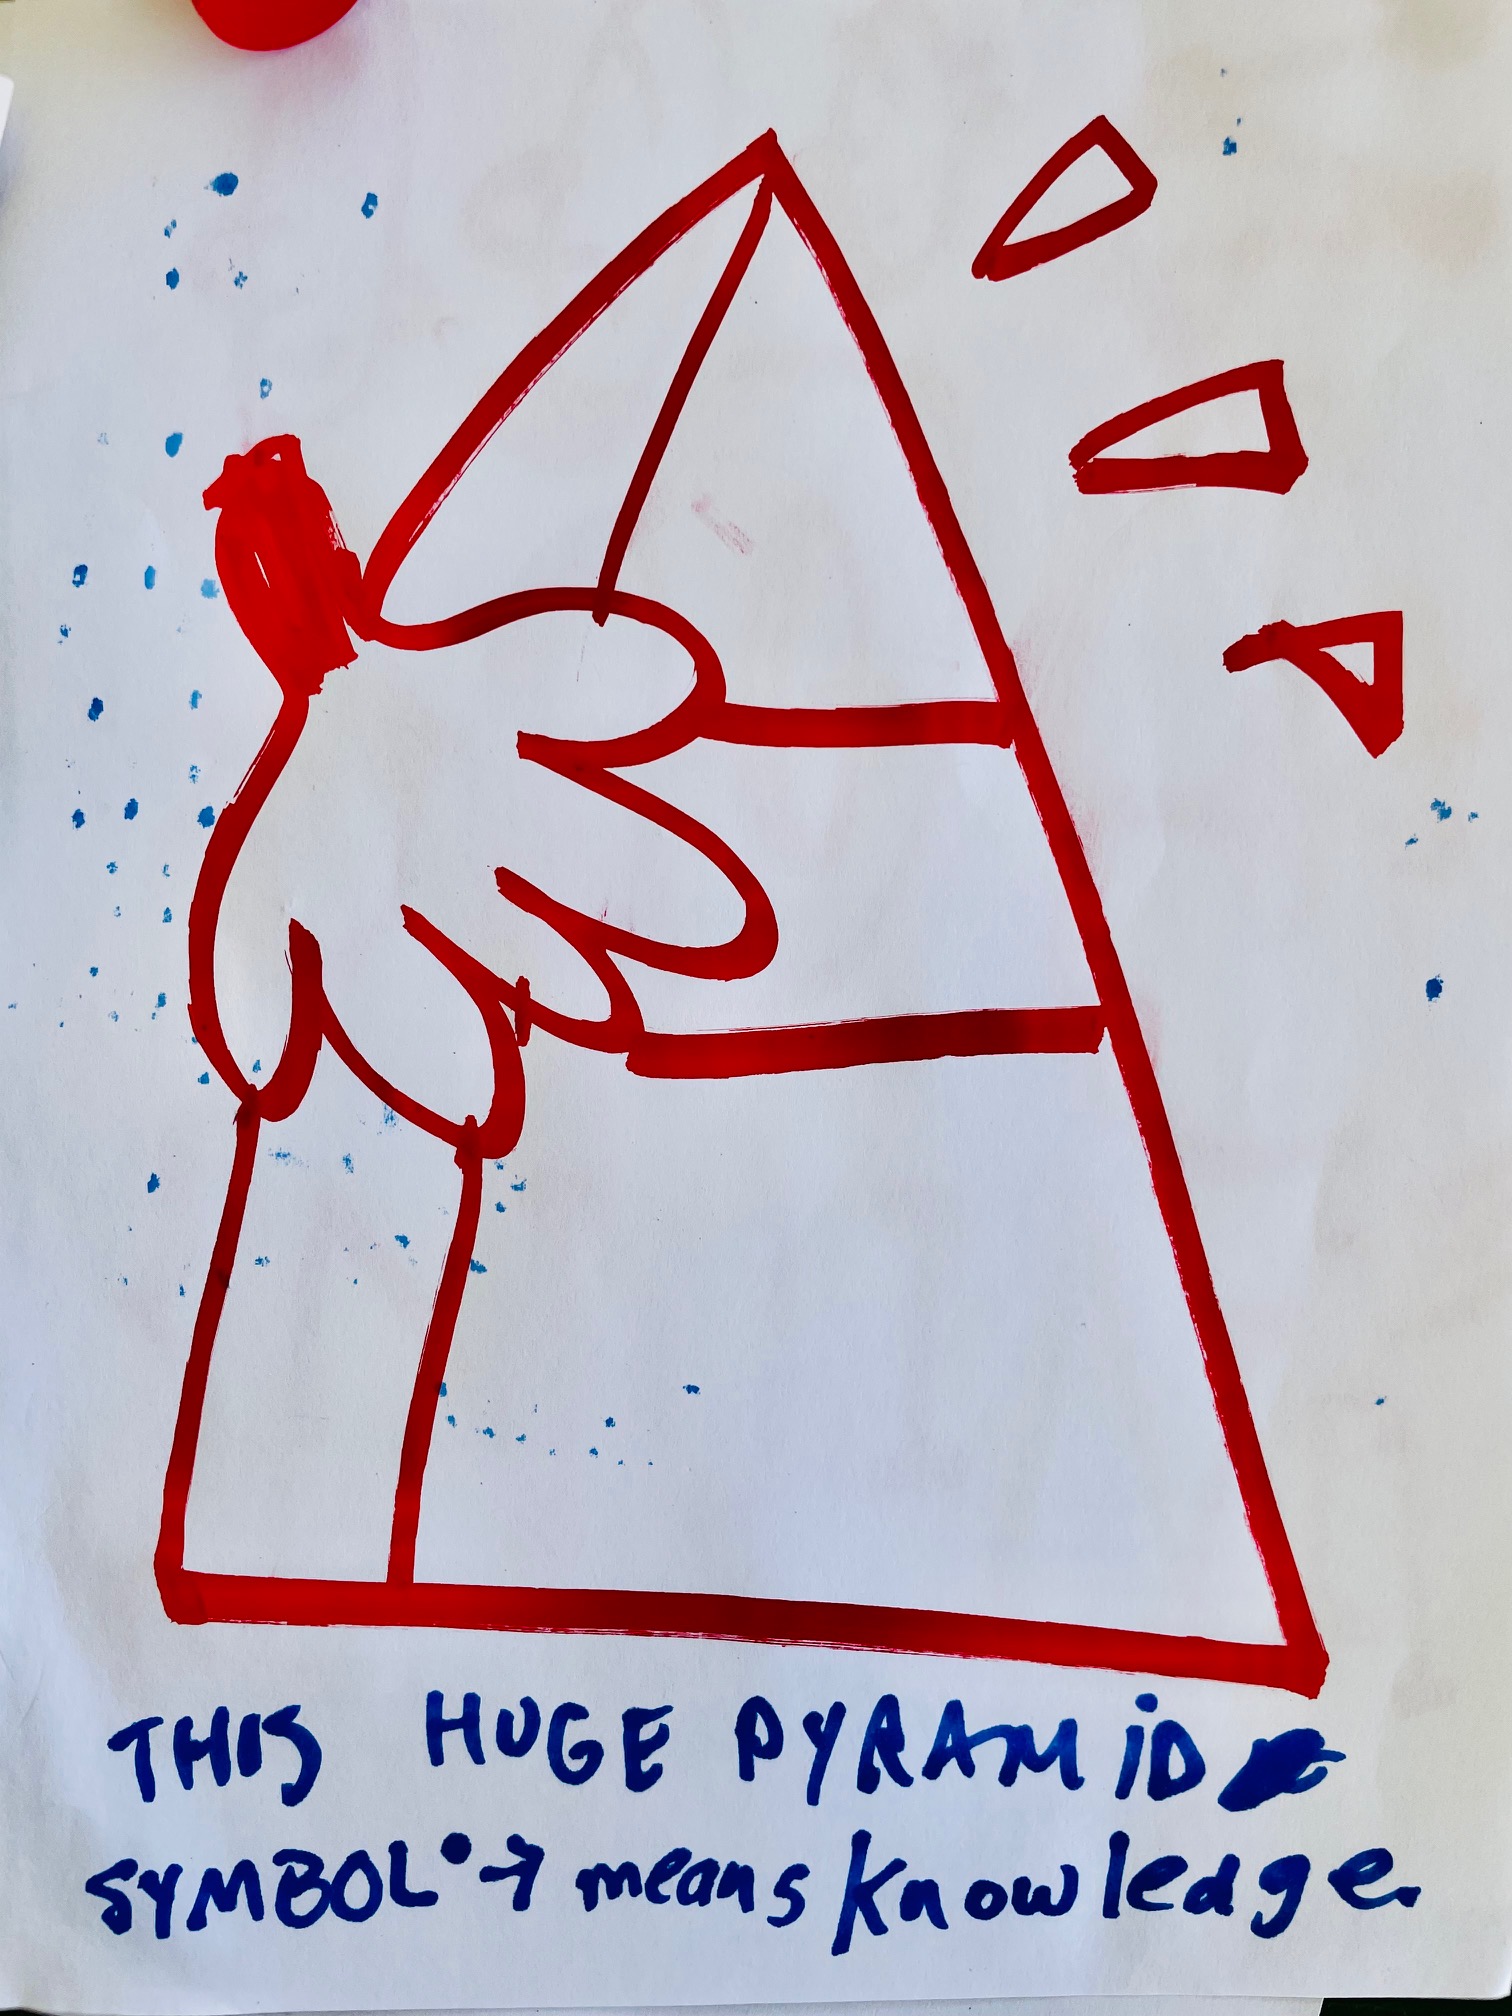 THIS HUGE PYRAMiD
SYMBOL•→ means Knowledge.